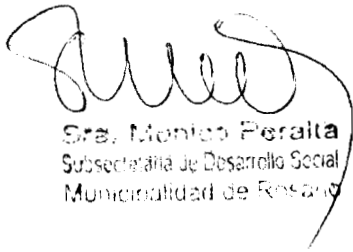 Sra. Monica Peralta
Subsecretaria de Desarrollo Social
Municipalidad de Rosario